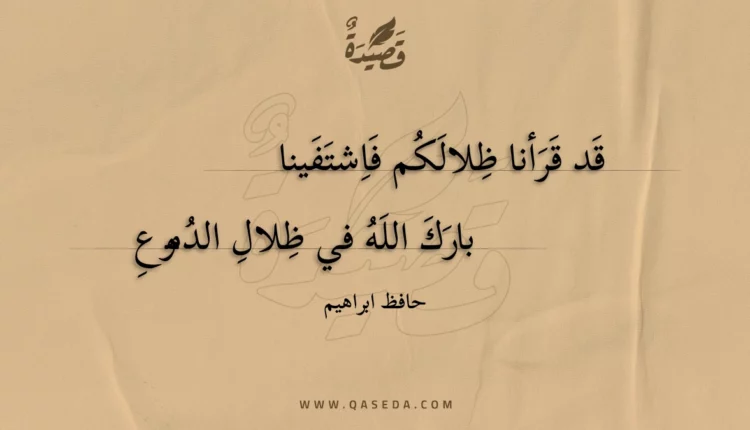 قَصِيْدَةٌ
قَد قَرَأنا ظِلالَكُم فَاِشتَفَينا
بارَكَ اللَهُ في ظِلالِ الدُموعِ
حافظ ابراهيم
WWW.QASEDA.COM